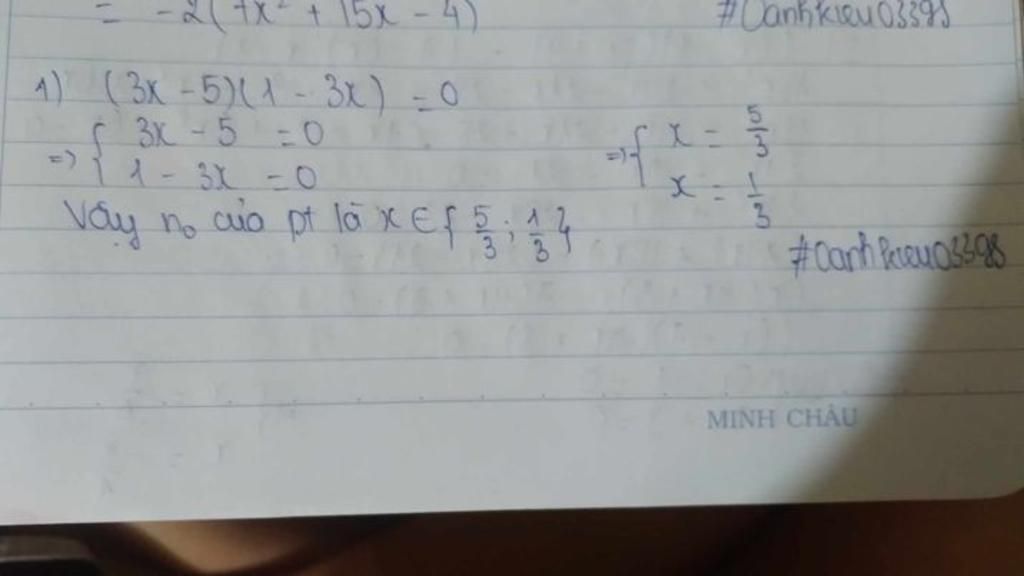 = -2(7x² + 15x - 4) #Oanhkieu03398
1) (3x - 5)(1 - 3x) = 0
=> { 3x - 5 = 0 => { x = 5/3
1 - 3x = 0 x = 1/3
Vậy no của pt là x ∈ { 5/3 ; 1/3 }
#Oanhkieu03398
MINH CHÂU